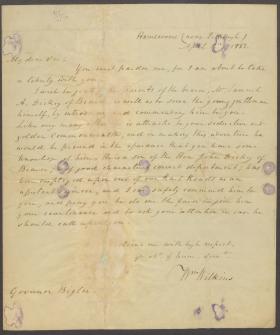 Homewood (near Pittsburgh)
April 1852.
My dear Sir:
You must pardon me, for I am about to take
a liberty with you.
I wish to gratify the parents of the bearer, Mr. Samuel
A. Dickey of Beaver, as well as to serve the young gentleman
himself, by introducing and commending him to you.
Like very many he is attracted to your seductive and
golden Commonwealth, and in making this adventure he
would be pleased in the assurance that you have some
knowledge of him. He is a son of the Hon. John Dickey of
Beaver, is of good character, correct deportment, has
been employed upon one of our Rail Roads as an
assistant engineer, and I can safely commend him to
you, and pray you to do me the favor to give him
your countenance and to ask your attention in case he
should call upon you.
I am with high respect,
yr. obt. & hum. servt.
Wm Wilkins
Governor Bigler.